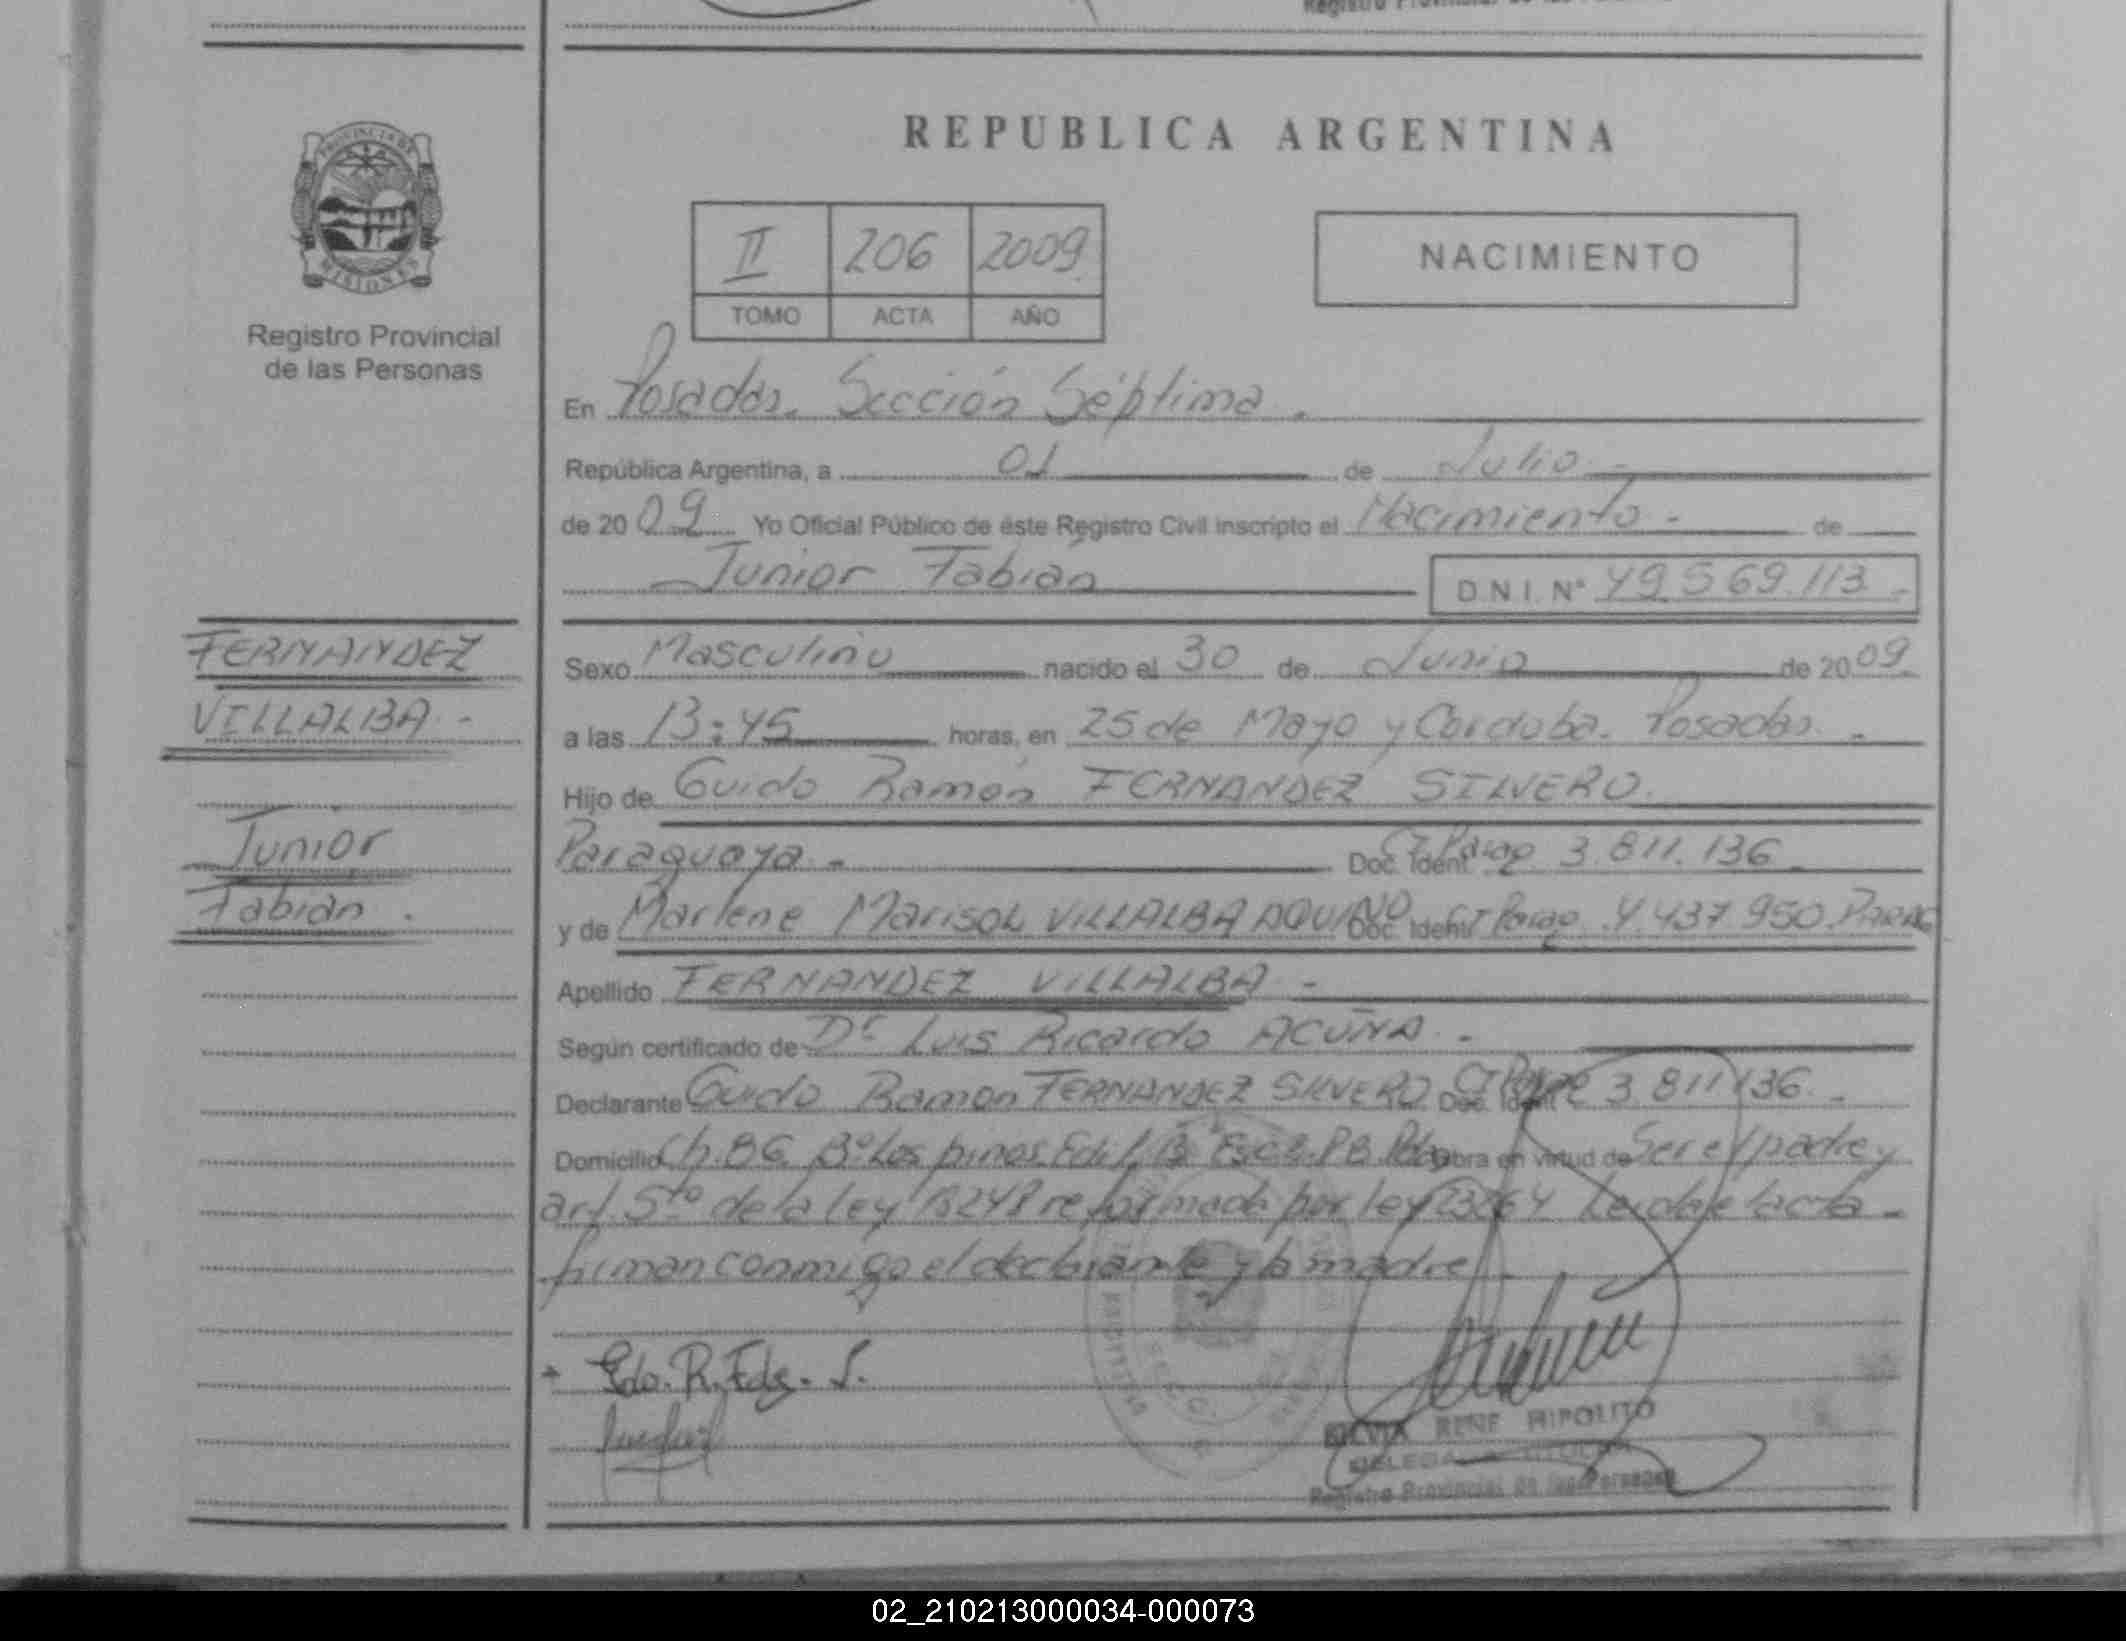 REPUBLICA ARGENTINA
PROVINCIA DE
MISIONES
Registro Provincial
de las Personas
II 206 2009
TOMO ACTA AÑO
NACIMIENTO
En Posadas. Sección Séptima.
República Argentina, a 01 de Julio.-
de 2009 Yo Oficial Público de éste Registro Civil inscripto el Nacimiento - de
Junior Fabián D.N.I. Nº 49.569.113-
FERNANDEZ
VILLALBA.-
Junior
Fabián.
Sexo Masculino nacido el 30 de Junio de 2009.
a las 13:45 horas, en 25 de Mayo y Cordoba. Posadas.-
Hijo de Guido Ramón FERNANDEZ SILVERO.
Paraguaya.- Doc. Ident CI Parag. 3.811.136
y de Marlene Marisol VILLALBA AQUINO Doc. Ident CI Parag. 4.437.950. PARAG
Apellido FERNANDEZ VILLALBA.-
Según certificado de Dr Luis Ricardo ACUÑA.-
Declarante Guido Ramon FERNANDEZ SILVERO Doc. Ident 3.811.136.-
Domicilio Ch. Bº Los pinos. Edif. PB. obra en virtud de Ser el padre y
art. 5to de la ley 18248 reformada por ley 23264 Leida el acta-
firman conmigo el declarante y la madre
Gdo. R. Fdz. S.
SILVIA RENE HIPOLITO
DELEGADA TITULAR
Registro Provincial de las Personas
02_210213000034-000073